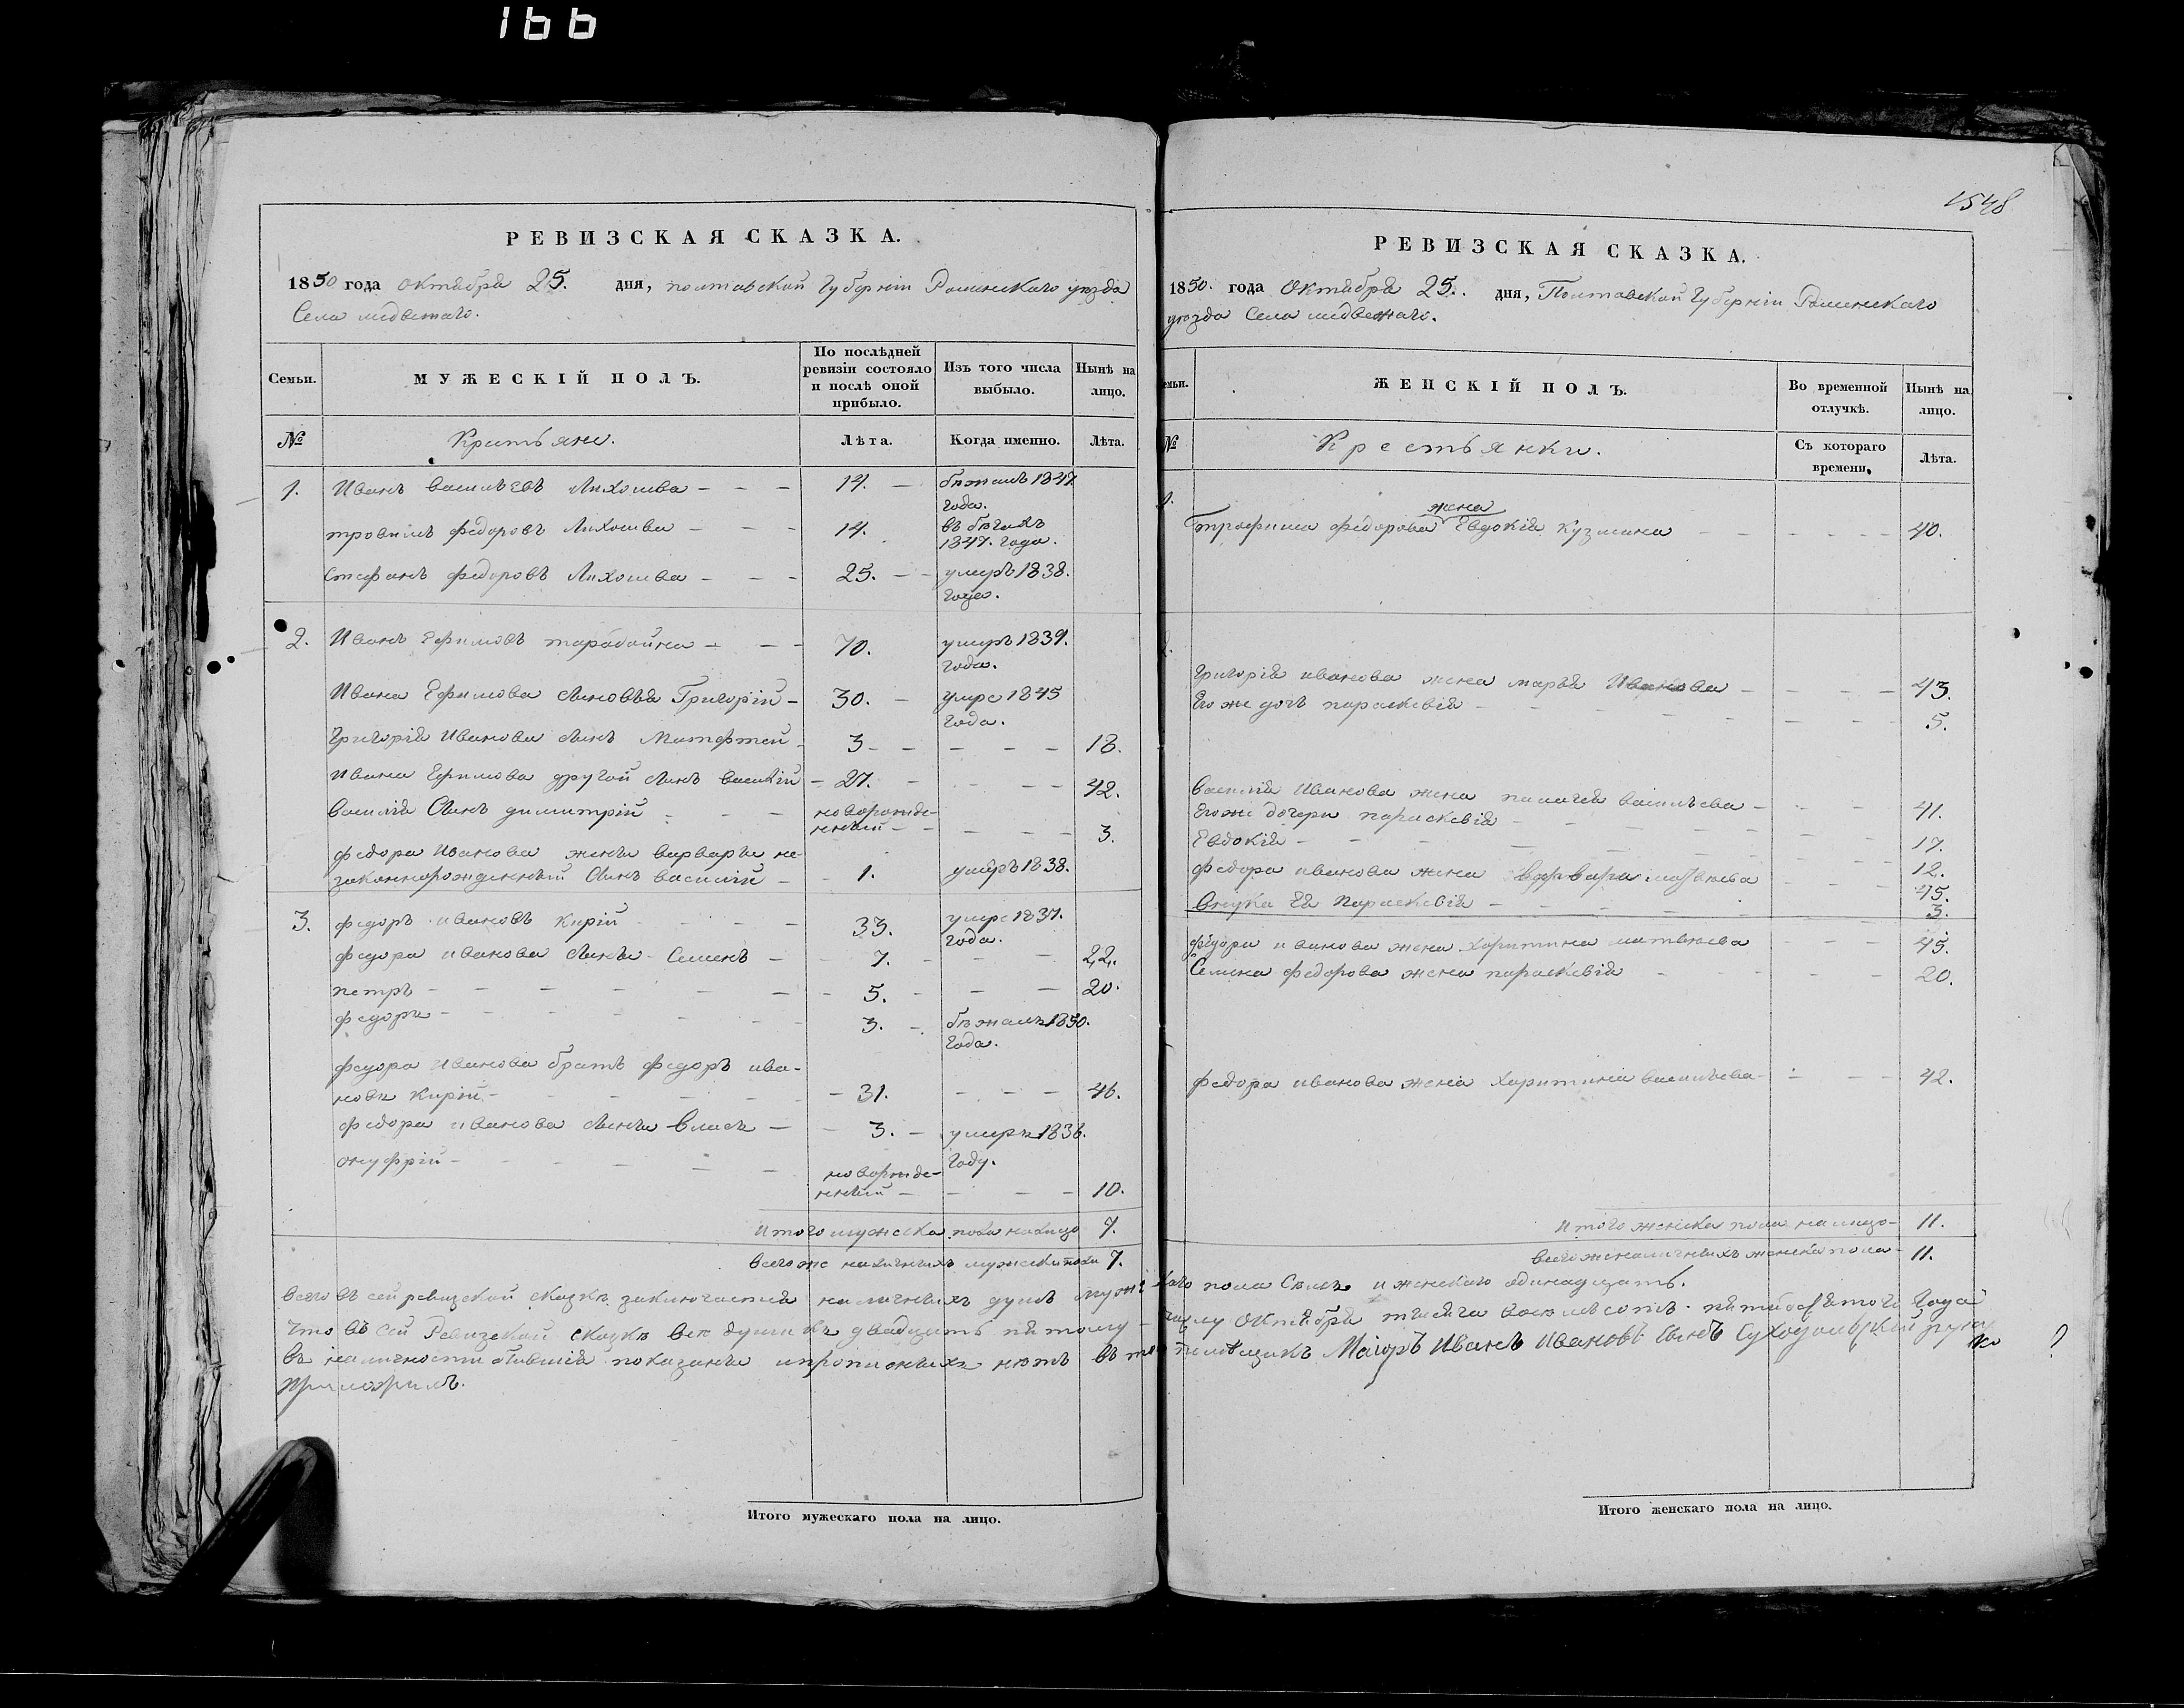 166
1548
РЕВИЗСКАЯ СКАЗКА.
1850 года октября 25. дня, полтавской Губерніи Роменскаго уезда
Села медвежаго.
Семьи.
МУЖЕСКІЙ ПОЛЪ.
По послѣдней ревизіи состояло и послѣ оной прибыло.
Изъ того числа выбыло.
Нынѣ на лицо.
№
Лѣта.
Когда именно.
Лѣта.
1. Иванъ васильевъ Лихошва — — — 14. — бежалъ 1847
года.
трофимъ федоровъ Лихошва — — — 14. въ бегахъ
1847. года.
Стефанъ федоровъ Лихошва — — — 25. — — умеръ 1838.
года.
2. Иванъ Ефимовъ — — — 70. умеръ 1839.
года.
Ивана Ефимова Григорій — 30. — умре 1845
года.
Григорія Иванова Сынъ — 3 — — — — — 18.
Ивана Ефимова другой Сынъ василій — 27. — — — 42.
василія Сынъ димитрій — — — новорожде-
нный — — — — — 3.
федора Иванова жены варвары не-
законнорожденный Сынъ василій — — 1. умеръ 1838.
3. федоръ ивановъ Кирій — — — 33. умре 1837.
года.
федора иванова Сыны Семенъ — — 7. — — — 22.
петръ — — — — — — — 5. — — — 20.
федоръ — — — — — — 3. — бежалъ 1850.
года.
федора Иванова братъ федоръ ива-
новъ Кирій — — — — — — 31. — — — 46.
федора иванова Сыны власъ — — 3. — умеръ 1836.
онуфрій — — — — — — новорожде- году.
нный — — — — 10.
Итого мужеска пола налицо 7.
Всего же наличныхъ мужска пола 7.
РЕВИЗСКАЯ СКАЗКА.
1850. года Октября 25. дня, Полтавской Губерніи Роменскаго
уезда Села медвежаго.
ЖЕНСКІЙ ПОЛЪ.
Во временной отлучкѣ.
Нынѣ на лицо.
№
Крестьянки.
Съ котораго времени.
Лѣта.
жена
Трофима федорова Евдокія Кузмина — — — — — — 40.
Григорія иванова жена марья Иванова — — — — 43.
Его же дочь параскевія — — — — — — — — — 5.
василія Иванова жена васильева — — — 41.
Его же дочери параскевія — — — — — — — — 17.
Евдокія — — — — — — — — — 12.
федора иванова жена варвара — — — 45.
внука Ея Параскевія — — — — 3.
федора иванова жена Харитина матвеева — — — 45.
Семена федорова жена параскевія — — — — 20.
федора иванова жена Харитина васильева — — — — 42.
Итого женска пола налицо — 11.
Всего же наличныхъ женска пола — 11.
Всего въ сей ревизской сказке заключается наличныхъ душъ мужескаго пола Семь и женскаго одинадцать.
Что въ сей Ревизской сказке все души къ двадцать пятому числу Октября тысяча восемьсотъ пятидесятого года
въ наличности бывшія показаны и прописныхъ нетъ въ том помещикъ Маіоръ Иванъ Ивановъ Сынъ Суходольскій руку
приложилъ.
Итого мужескаго пола на лицо.
Итого женскаго пола на лицо.